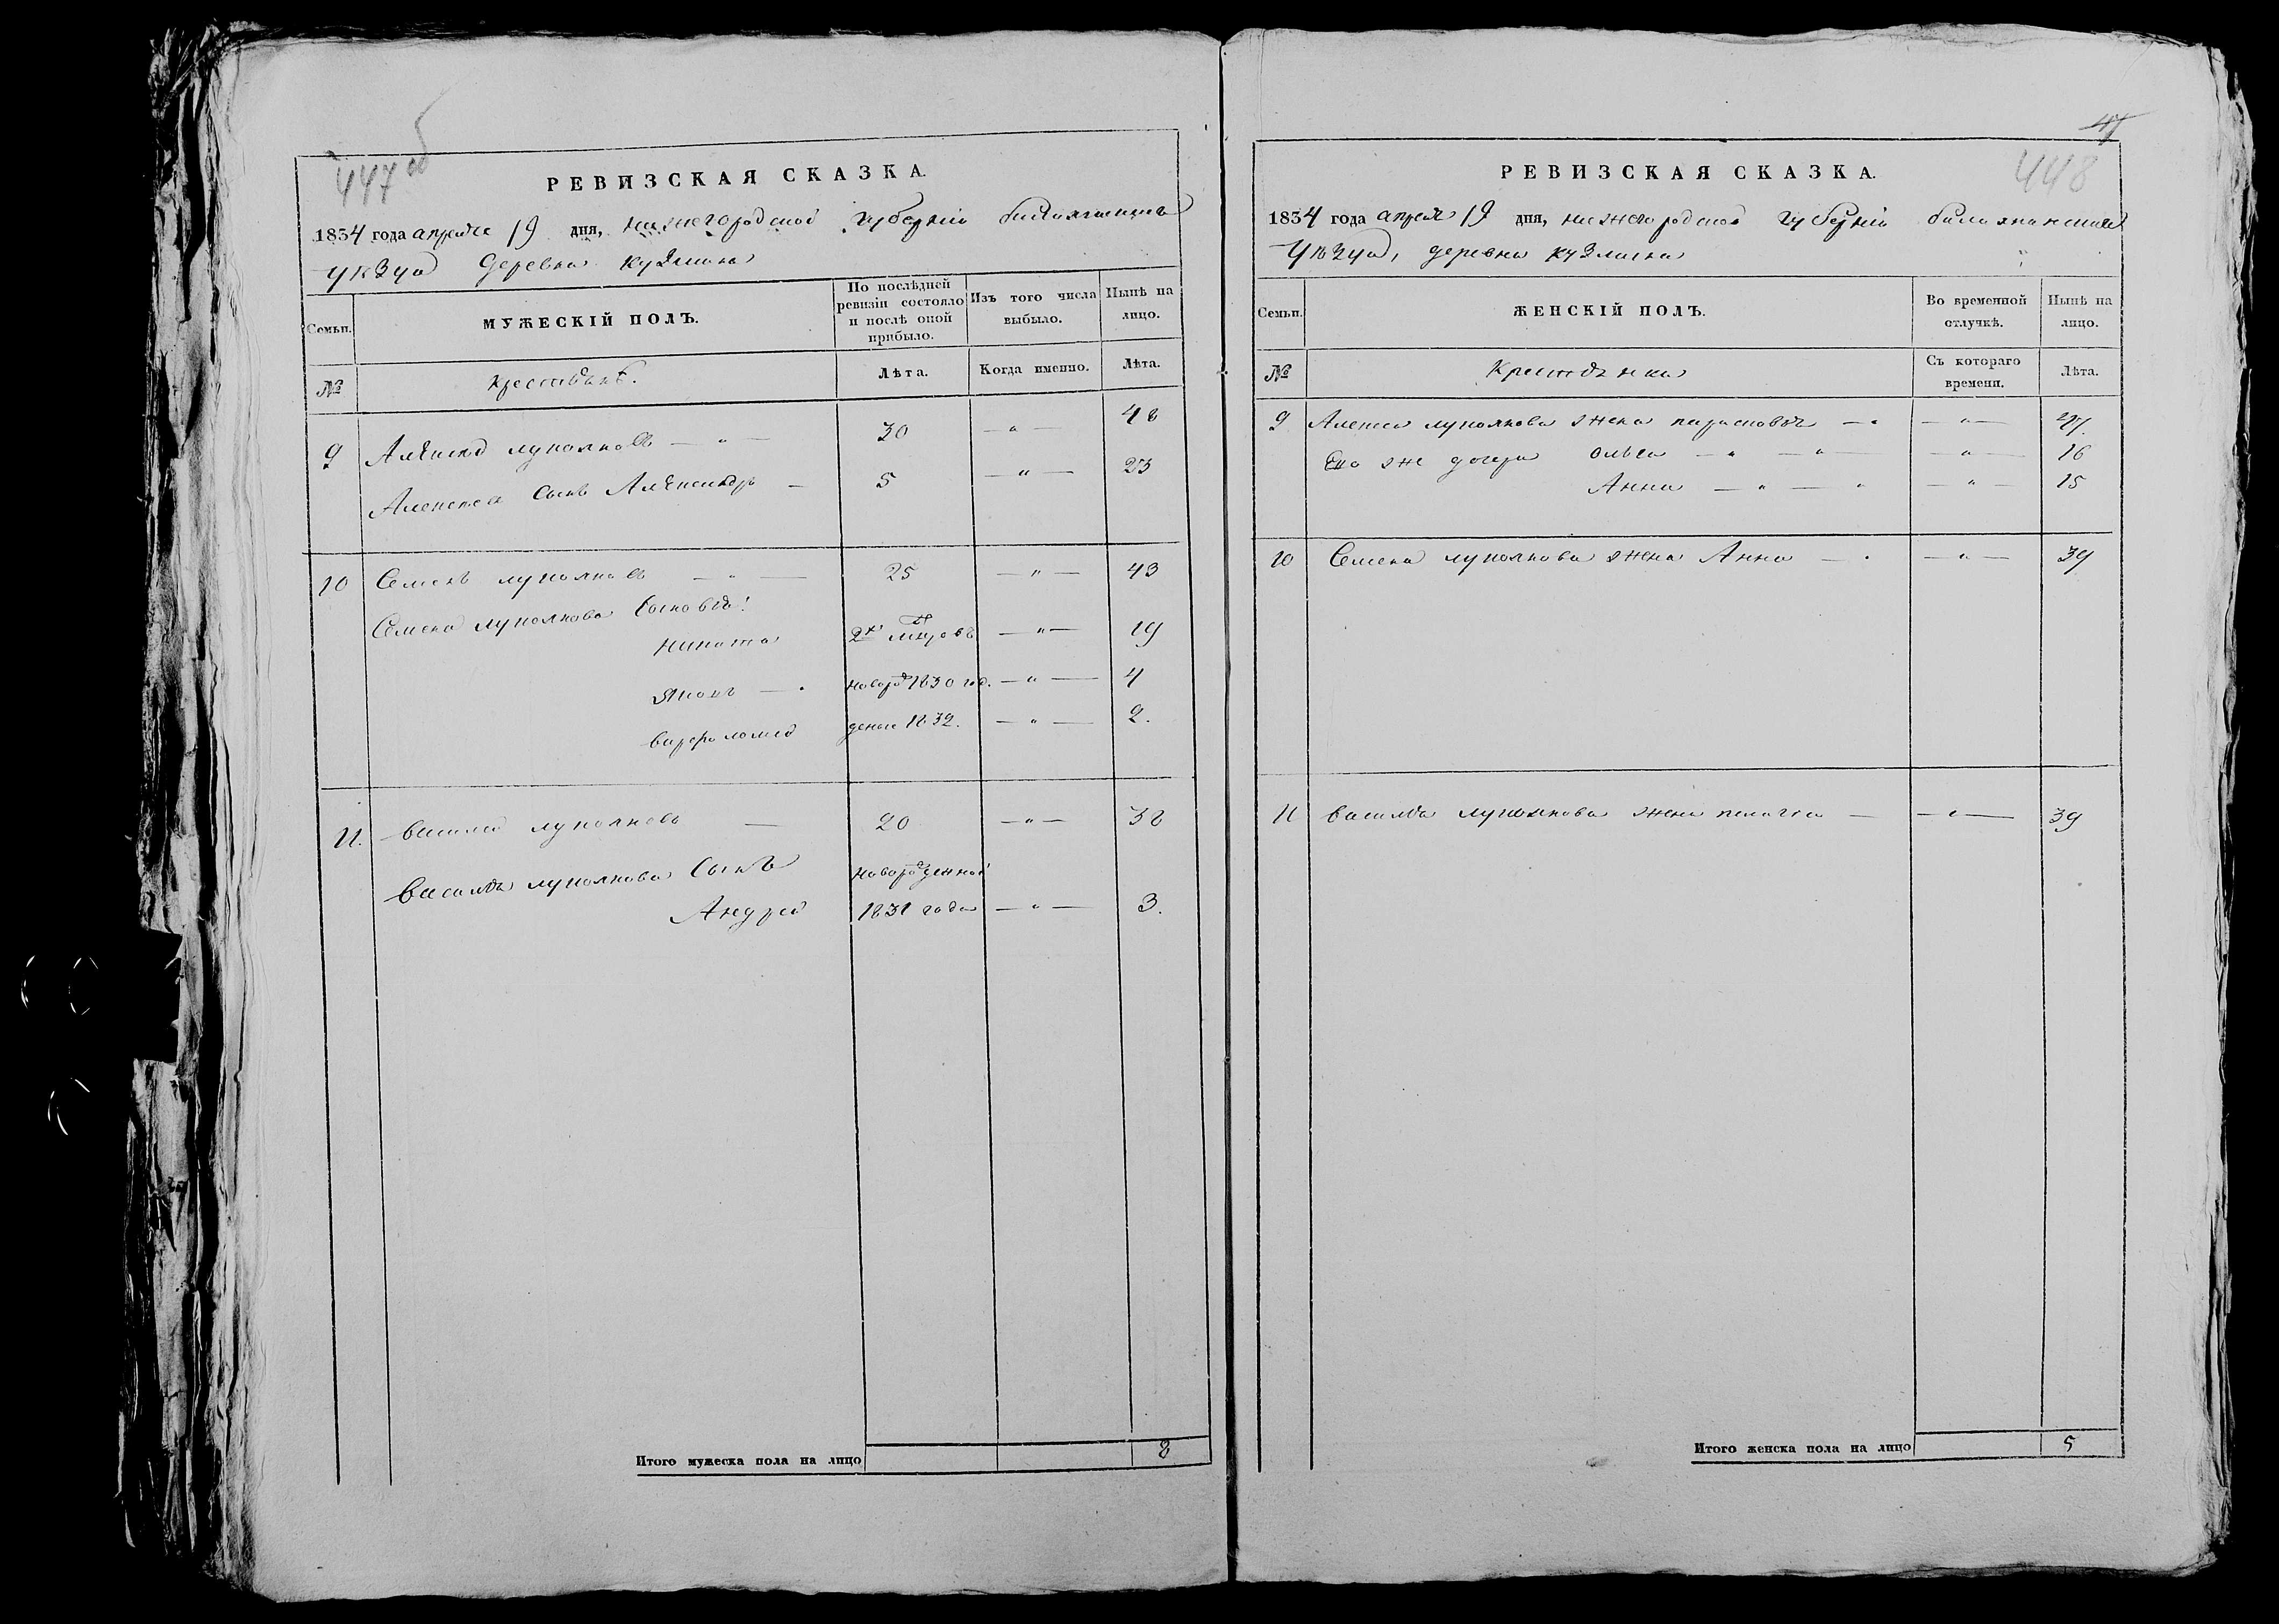 447 об
РЕВИЗСКАЯ СКАЗКА.
1834 года апреля 19 дня, нижегородской губернии балахнинскаго
уѣзда деревня кузмина
Семьи.
МУЖЕСКІЙ ПОЛЪ.
По послѣдней ревизіи состояло и послѣ оной прибыло.
Изъ того числа выбыло.
Нынѣ на лицо.
№
крестьянѣ.
Лѣта.
Когда именно.
Лѣта.
9 Алексей лукояновъ — „ — 30 — „ — 48
Алексея сынъ Александръ — 5 — „ — 23
10 Семенъ лукояновъ — „ — 25 — „ — 43
Семена лукоянова сыновья:
никита 2х мцовъ — „ — 19
яковъ — новорож 1830 год. — „ — 4
варфоломей деные 1832. — „ — 2.
11. василей лукояновъ — 20 — „ — 38
василья лукоянова сынъ новорожденной
Андрей 1831 года — „ — 3.
Итого мужеска пола на лицо 8
448
РЕВИЗСКАЯ СКАЗКА.
1834 года апреля 19 дня, нижегородской губерніи балахнинскаго
уѣзда, деревни кузмина
Семьи.
ЖЕНСКІЙ ПОЛЪ.
Во временной отлучкѣ.
Нынѣ на лицо.
№
Крестьянки
Съ котораго времени.
Лѣта.
9 Алексея лукоянова жена парасковья — „ — „ — 47.
Ево же дочери ольга — „ — „ — — „ — 16
Анна — „ — „ — „ — 15
10 Семена лукоянова жена Анна — „ — „ — 39
11 василья лукоянова жена пелагея — — „ — 39
Итого женска пола на лицо 5